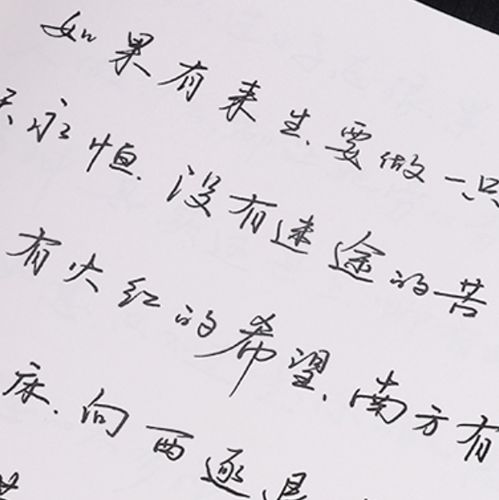 如果有来生,要做一只
永恒.没有迷途的苦
有火红的希望.南方有
床.向西逐